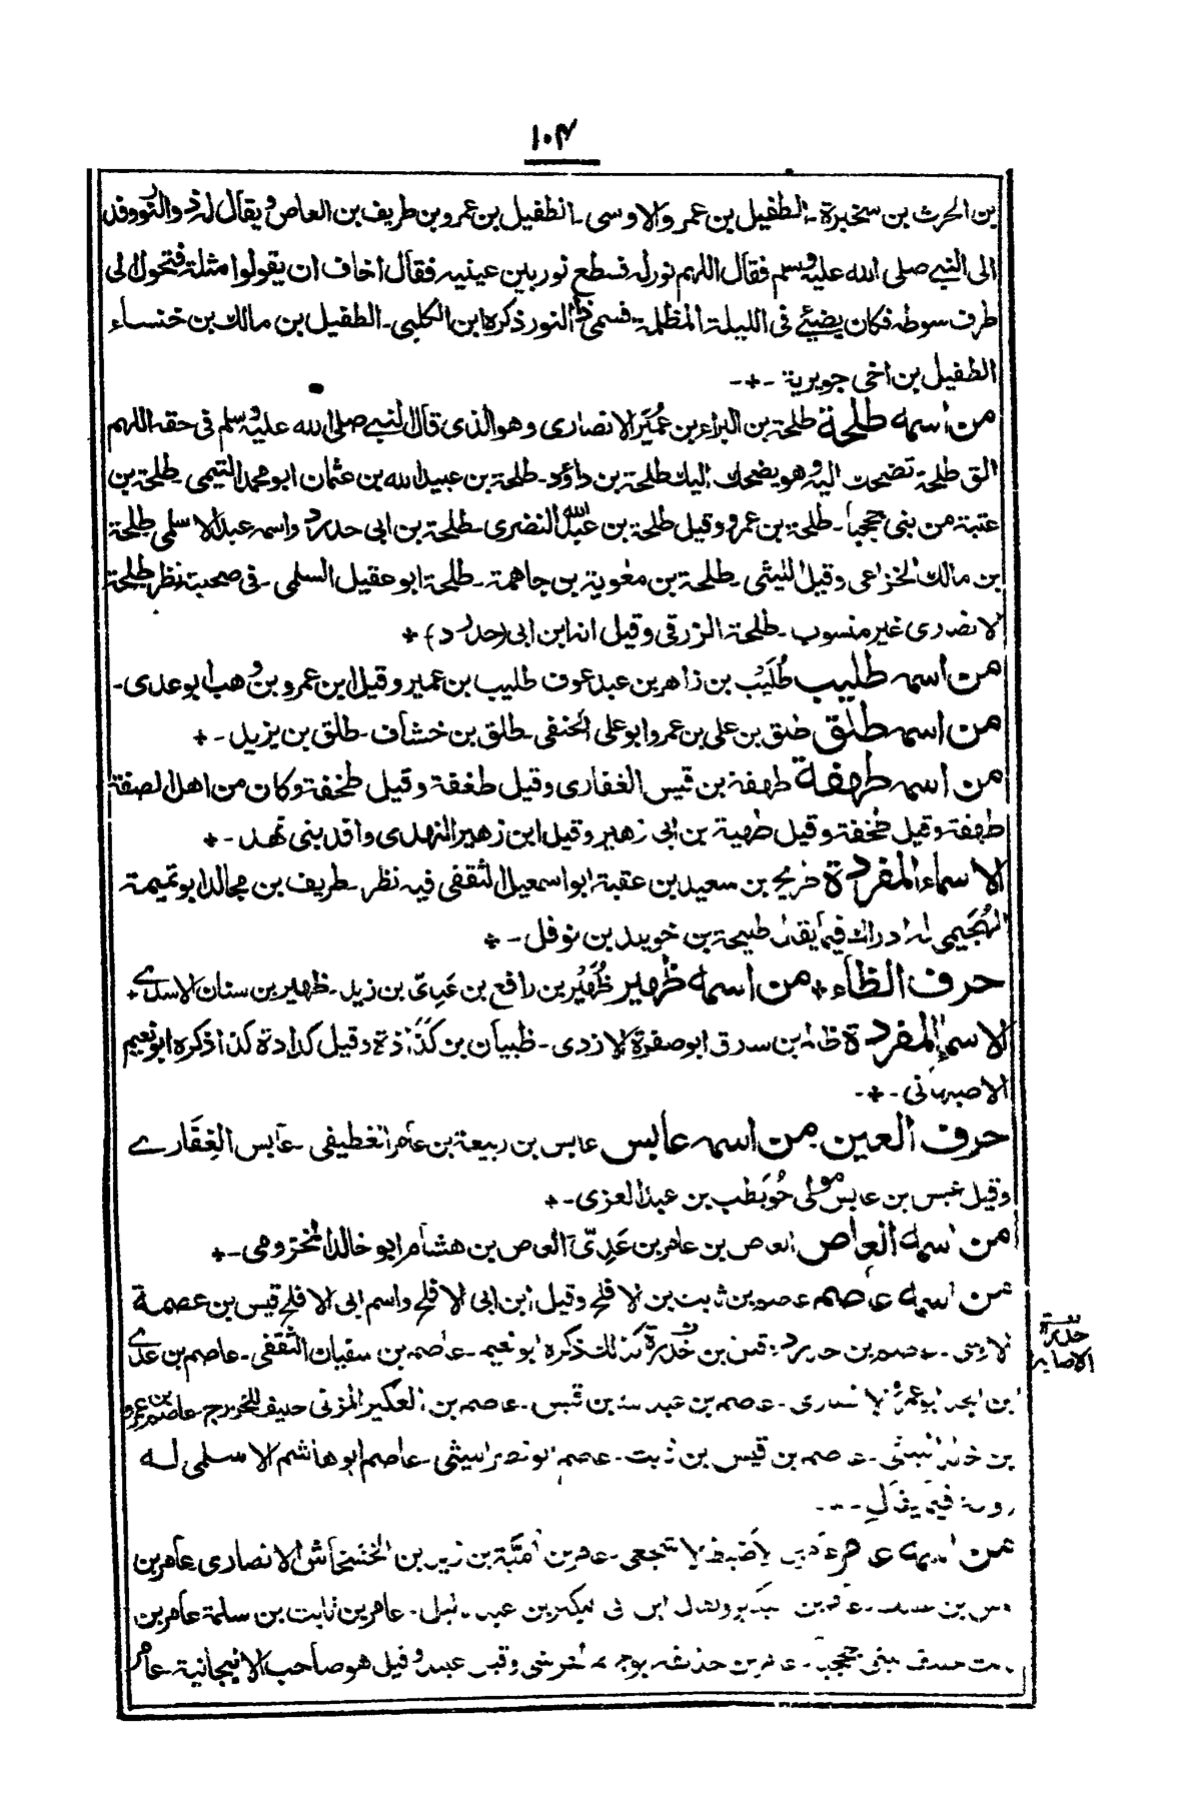 ۱۰۴
بن الحرث بن سخبرة ـ الطفيل بن عمرو الاوسى ـ الطفيل بن عمرو بن طريف بن العاص ويقال له ذو النور وفد
الى النبى صلى الله عليه وسلم فقال اللهم نور له فسطع نور بين عينيه فقال اخاف ان يقولوا مثلة فتحول الى
طرف سوطه فكان يضيئ فى الليلة المظلمة فسمى ذا النور ذكره ابن الكلبى ـ الطفيل بن مالك بن خنساء
الطفيل بن اخى جويرية ـ+ـ
من اسمه طلحة طلحة بن البراء بن عُمَيَر الانصارى وهو الذى قال النبى صلى الله عليه وسلم فى حقه اللهم
الق طلحة تضحك اليه وهو يضحك اليك طلحة بن داؤد ـ طلحة بن عبيد الله بن عثمان ابو محمد التيمى ـ طلحة بن
عتبة من بنى جحجبا ـ طلحة بن عمرو وقيل طلحة بن عبد الله النضرى ـ طلحة بن ابى حدرد واسمه عبد الاسلمى طلحة
بن مالك الخزاعى وقيل الليثى ـ طلحة بن معوية بن جاهمة ـ طلحة ابو عقيل السلمى ـ فى صحبة نظر طلحة
الانصارى غير منسوب ـ طلحة الزرقى وقيل انه ابن ابى (حدرد) +
من اسمه طليب طُلَيْب بن زاهر بن عبد عوف طليب بن عمير وقيل ابن عمرو بن وهب ابو عدى ـ
من اسمه طلق طلق بن على بن عمرو ابو على الحنفى ـ طلق بن خشاف ـ طلق بن يزيد ـ +
من اسمه طهفة طهفة بن قيس الغفارى وقيل طغفة وقيل طخفة وكان من اهل الصفة
طهفة وقيل طخفة وقيل طهية بن ابى زهير وقيل ابن زهير النهدى وافد بنى نهد ـ +
الاسماء المفردة طريح بن سعيد بن عقبة ابو اسمعيل الثقفى فيه نظر ـ طريف بن مجالد ابو تميمة
الهُجَيمى له ادراك فيما يقال طليحة بن خويلد بن نوفل ـ +
حرف الظاء + من اسمه ظهير ظُهَيْر بن رافع بن عَدِىّ بن زيد ـ ظهير بن سنان الاسدے +
الاسماء المفردة ظالم بن سارق ابو صفرة الازدى ـ ظبيان بن كدادة وقيل كرادة كذا ذكره ابو نعيم
الاصبهانى ـ+ـ
حرف العين من اسمه عابس عابس بن ربيعة بن عامر الغطيفى ـ عابس الغِفَارے
وقيل عبس بن عابس مولى حُوَيطب بن عبد العزى ـ +
من اسمه العاص العاص بن عامر بن عَدِىّ العاص بن هشام ابو خالد المخزومى ـ +
من اسمه عاصم عاصم بن ثابت بن الافلح وقيل ابن ابى الافلح واسم ابى الافلح قيس بن عصمة
الاوسى ـ عاصم بن حدرد كذلك ذكره ابو نعيم ـ عاصم بن سفيان الثقفى ـ عاصم بن عدے
بن الجد ابو عمرو الانصارى ـ عاصم بن بن قيس ـ عاصم بن العكير المزنى حليف للخزرج عاصم بن عمرو
بن خالد الليثى ـ عاصم بن قيس بن ثابت ـ عاصم ابو نصر الليثى ـ عاصم ابو هاشم الاسلمى له
رواية فيما يقال ـ
من اسمه عامر بن الاضبط الاشجعى ـ عامر بن اميّة بن زيد بن الخشخاش الانصارى عامر بن
عامر بن البكير عامر بن ثابت بن سلمة عامر بن
بنى جحجبا ـ عامر بن حذيفة القرشى وقيل عبيد وقيل هو صاحب الانبجانية ـ عامر
الاصابه